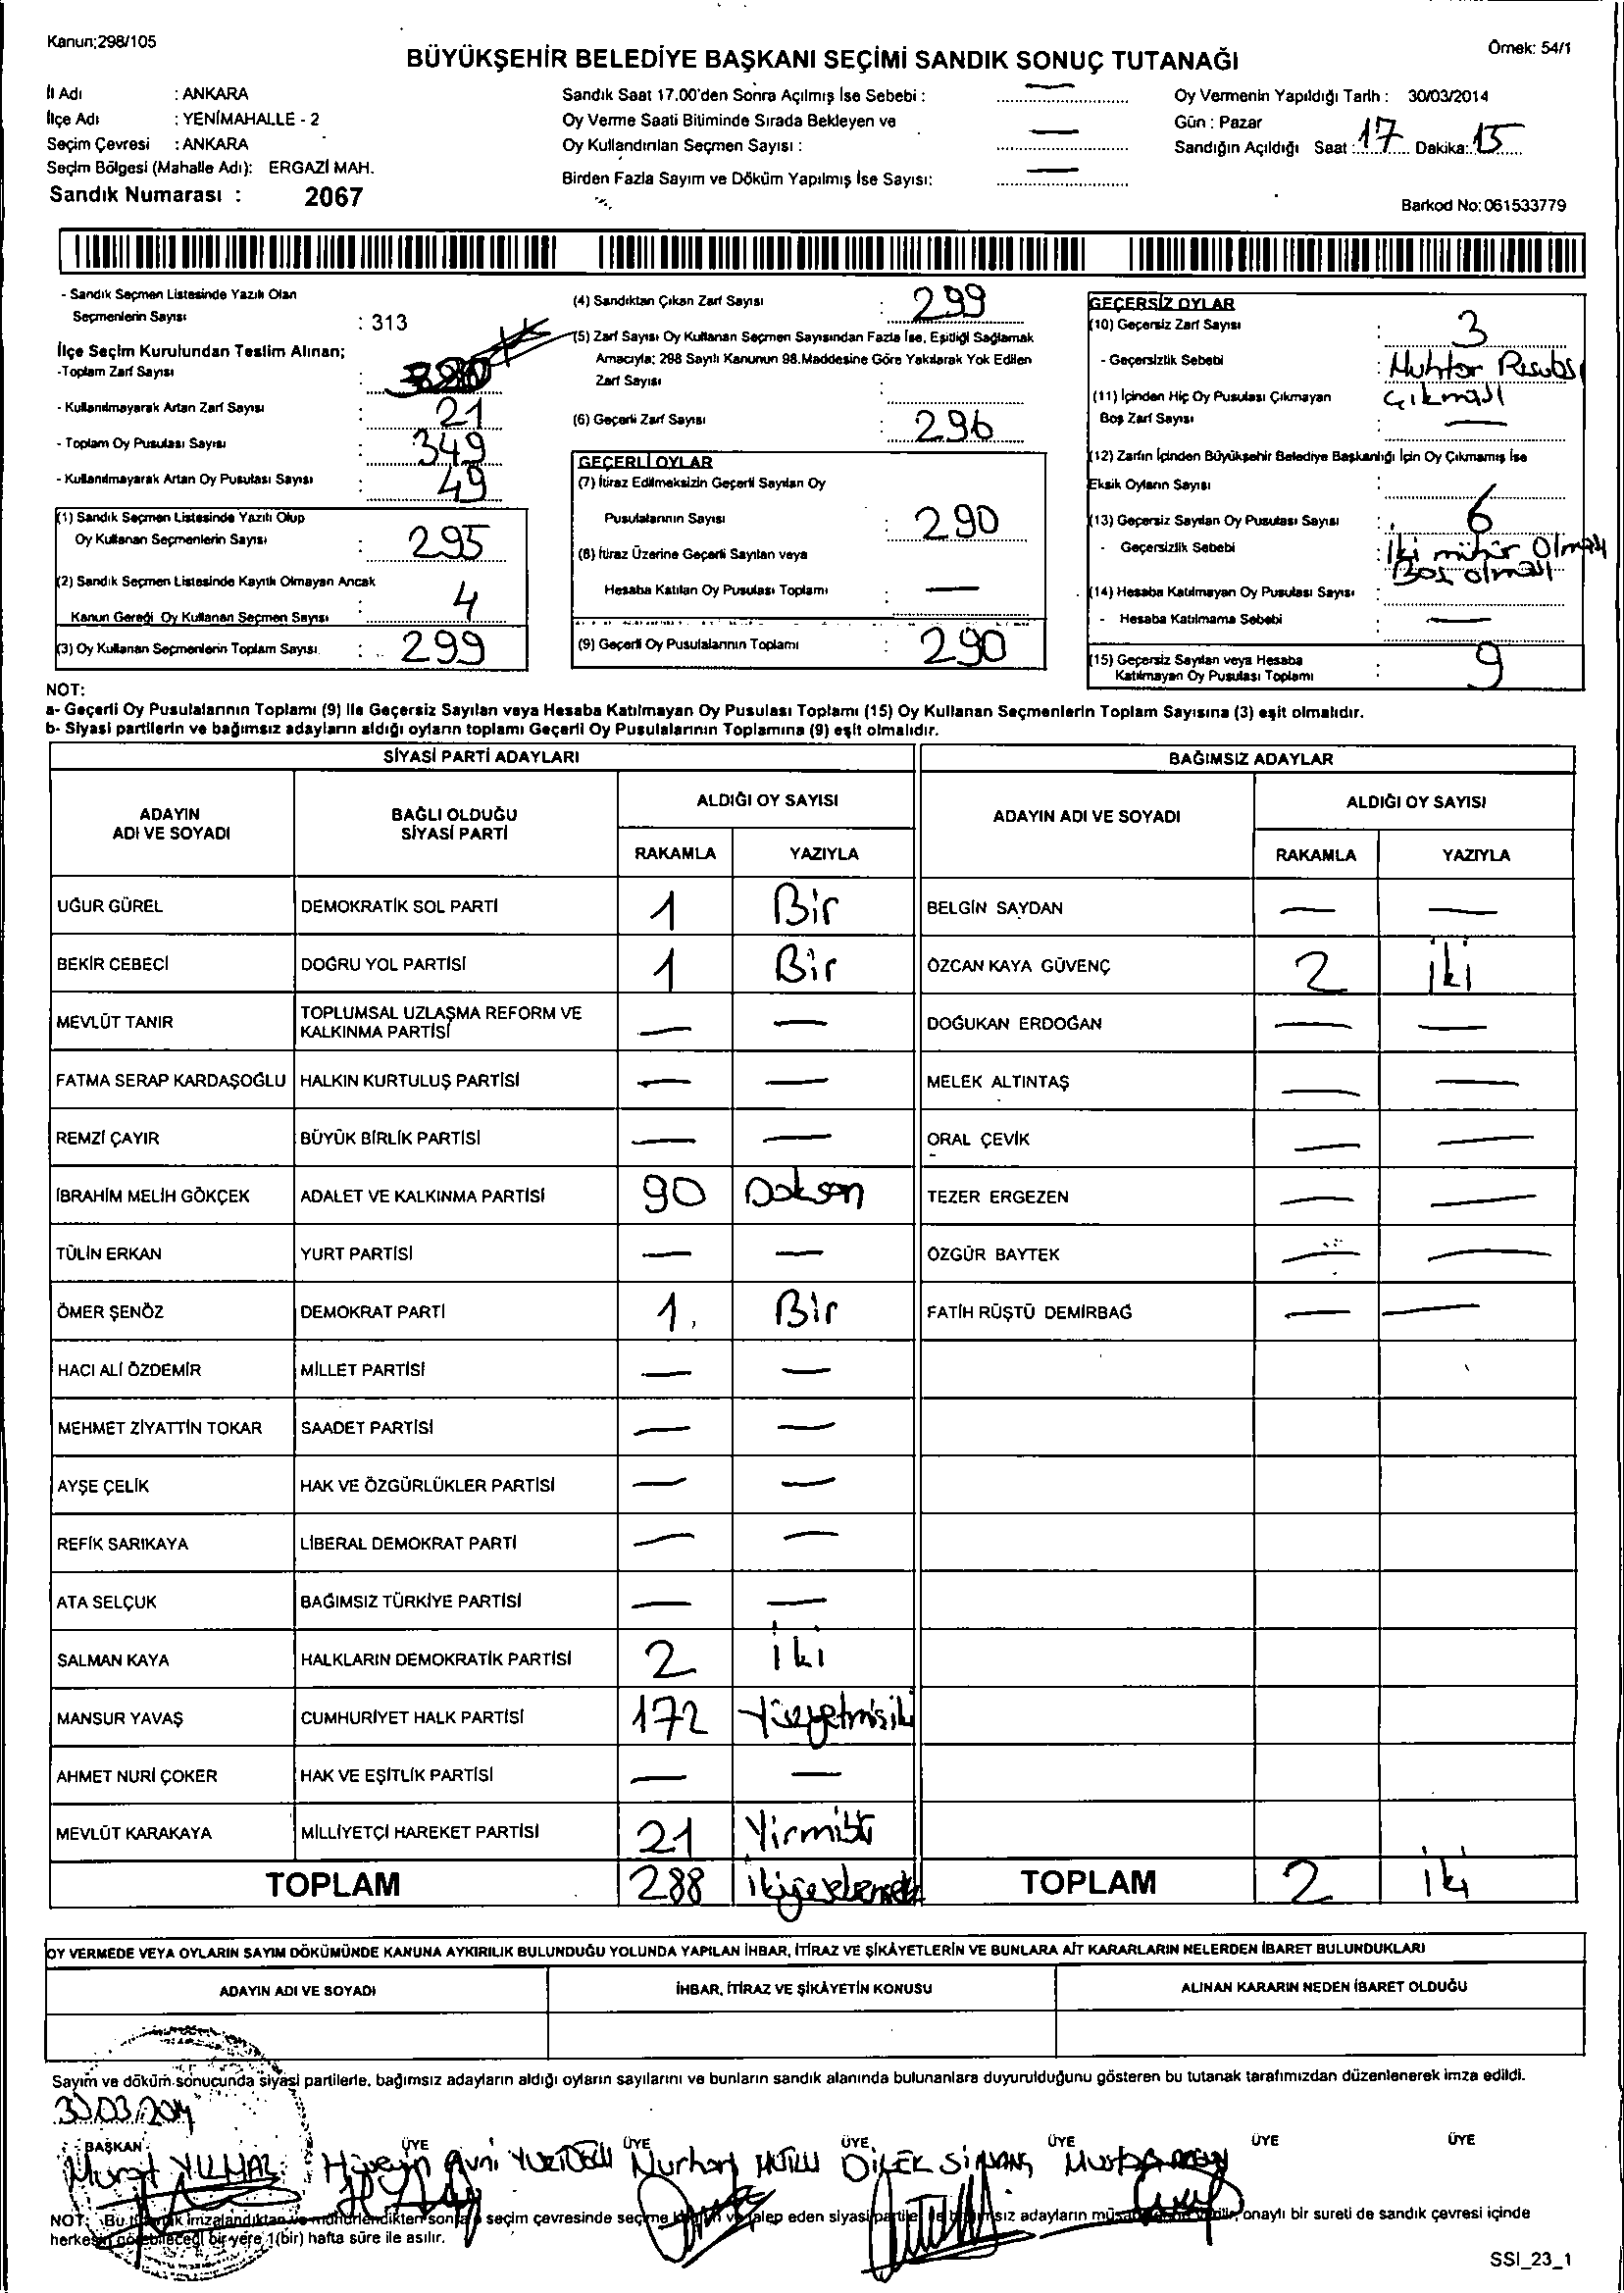 Kanun;298/105
Örnek: 54/1
BÜYÜKŞEHİR BELEDİYE BAŞKANI SEÇİMİ SANDIK SONUÇ TUTANAĞI
İl Adı : ANKARA
İlçe Adı : YENİMAHALLE - 2
Seçim Çevresi : ANKARA
Seçim Bölgesi (Mahalle Adı): ERGAZİ MAH.
Sandık Numarası : 2067
Sandık Saat 17.00'den Sonra Açılmış İse Sebebi : —
Oy Verme Saati Bitiminde Sırada Bekleyen ve
Oy Kullandırılan Seçmen Sayısı : —
Birden Fazla Sayım ve Döküm Yapılmış İse Sayısı: —
Oy Vermenin Yapıldığı Tarih : 30/03/2014
Gün : Pazar
Sandığın Açıldığı Saat : 17 Dakika: 15
Barkod No: 061533779
- Sandık Seçmen Listesinde Yazılı Olan
Seçmenlerin Sayısı : 313
İlçe Seçim Kurulundan Teslim Alınan;
-Toplam Zarf Sayısı :
- Kullanılmayarak Artan Zarf Sayısı : 21
- Toplam Oy Pusulası Sayısı : 349
- Kullanılmayarak Artan Oy Pusulası Sayısı : 49
(1) Sandık Seçmen Listesinde Yazılı Olup
Oy Kullanan Seçmenlerin Sayısı : 295
(2) Sandık Seçmen Listesinde Kayıtlı Olmayan Ancak
Kanun Gereği Oy Kullanan Seçmen Sayısı : 4
(3) Oy Kullanan Seçmenlerin Toplam Sayısı : 299
(4) Sandıktan Çıkan Zarf Sayısı : 299
(5) Zarf Sayısı Oy Kullanan Seçmen Sayısından Fazla İse, Eşitliği Sağlamak
Amacıyla; 298 Sayılı Kanunun 98.Maddesine Göre Yakılarak Yok Edilen
Zarf Sayısı :
(6) Geçerli Zarf Sayısı : 296
GEÇERLİ OYLAR
(7) İtiraz Edilmeksizin Geçerli Sayılan Oy
Pusulalarının Sayısı : 290
(8) İtiraz Üzerine Geçerli Sayılan veya
Hesaba Katılan Oy Pusulası Toplamı : —
(9) Geçerli Oy Pusulalarının Toplamı : 290
GEÇERSİZ OYLAR
(10) Geçersiz Zarf Sayısı : 3
- Geçersizlik Sebebi : Muhtar Pusulası
çıkması
(11) İçinden Hiç Oy Pusulası Çıkmayan
Boş Zarf Sayısı : —
(12) Zarfın İçinden Büyükşehir Belediye Başkanlığı İçin Oy Çıkmamış İse
Eksik Oyların Sayısı :
(13) Geçersiz Sayılan Oy Pusulası Sayısı : 6
- Geçersizlik Sebebi : İki mühür Olması
Boş olması
(14) Hesaba Katılmayan Oy Pusulası Sayısı :
- Hesaba Katılmama Sebebi : —
(15) Geçersiz Sayılan veya Hesaba
Katılmayan Oy Pusulası Toplamı : 9
NOT:
a- Geçerli Oy Pusulalarının Toplamı (9) İle Geçersiz Sayılan veya Hesaba Katılmayan Oy Pusulası Toplamı (15) Oy Kullanan Seçmenlerin Toplam Sayısına (3) eşit olmalıdır.
b- Siyasi partilerin ve bağımsız adayların aldığı oyların toplamı Geçerli Oy Pusulalarının Toplamına (9) eşit olmalıdır.
SİYASİ PARTİ ADAYLARI
ADAYIN ADI VE SOYADI BAĞLI OLDUĞU SİYASİ PARTİ ALDIĞI OY SAYISI
RAKAMLA YAZIYLA
UĞUR GÜREL DEMOKRATİK SOL PARTİ 1 Bir
BEKİR CEBECİ DOĞRU YOL PARTİSİ 1 Bir
MEVLÜT TANIR TOPLUMSAL UZLAŞMA REFORM VE KALKINMA PARTİSİ — —
FATMA SERAP KARDAŞOĞLU HALKIN KURTULUŞ PARTİSİ — —
REMZİ ÇAYIR BÜYÜK BİRLİK PARTİSİ — —
İBRAHİM MELİH GÖKÇEK ADALET VE KALKINMA PARTİSİ 90 Doksan
TÜLİN ERKAN YURT PARTİSİ — —
ÖMER ŞENÖZ DEMOKRAT PARTİ 1 Bir
HACI ALİ ÖZDEMİR MİLLET PARTİSİ — —
MEHMET ZİYATTİN TOKAR SAADET PARTİSİ — —
AYŞE ÇELİK HAK VE ÖZGÜRLÜKLER PARTİSİ — —
REFİK SARIKAYA LİBERAL DEMOKRAT PARTİ — —
ATA SELÇUK BAĞIMSIZ TÜRKİYE PARTİSİ — —
SALMAN KAYA HALKLARIN DEMOKRATİK PARTİSİ 2 iki
MANSUR YAVAŞ CUMHURİYET HALK PARTİSİ 172 Yüzyetmişiki
AHMET NURİ ÇOKER HAK VE EŞİTLİK PARTİSİ — —
MEVLÜT KARAKAYA MİLLİYETÇİ HAREKET PARTİSİ 21 Yirmibir
TOPLAM 288
BAĞIMSIZ ADAYLAR
ADAYIN ADI VE SOYADI ALDIĞI OY SAYISI
RAKAMLA YAZIYLA
BELGİN SAYDAN — —
ÖZCAN KAYA GÜVENÇ 2 iki
DOĞUKAN ERDOĞAN — —
MELEK ALTINTAŞ — —
ORAL ÇEVİK — —
TEZER ERGEZEN — —
ÖZGÜR BAYTEK — —
FATİH RÜŞTÜ DEMİRBAĞ — —
TOPLAM 2 iki
OY VERMEDE VEYA OYLARIN SAYIM DÖKÜMÜNDE KANUNA AYKIRILIK BULUNDUĞU YOLUNDA YAPILAN İHBAR, İTİRAZ VE ŞİKÂYETLERİN VE BUNLARA AİT KARARLARIN NELERDEN İBARET BULUNDUKLARI
ADAYIN ADI VE SOYADI İHBAR, İTİRAZ VE ŞİKÂYETİN KONUSU ALINAN KARARIN NEDEN İBARET OLDUĞU
Sayım ve döküm sonucunda siyasi partilerle, bağımsız adayların aldığı oyların sayılarını ve bunların sandık alanında bulunanlara duyurulduğunu gösteren bu tutanak tarafımızdan düzenlenerek imza edildi.
30.03.2014
BAŞKAN ÜYE ÜYE ÜYE ÜYE ÜYE ÜYE
Murat YILMAZ Hüseyin Avni Nurhan DİLEK
NOT: Bu imzalandıktan ve mühürlendikten sonra seçim çevresinde talep eden siyasi adayların onaylı bir sureti de sandık çevresi içinde
herkesin görebileceği bir yere 1(bir) hafta süre ile asılır.
SSI_23_1